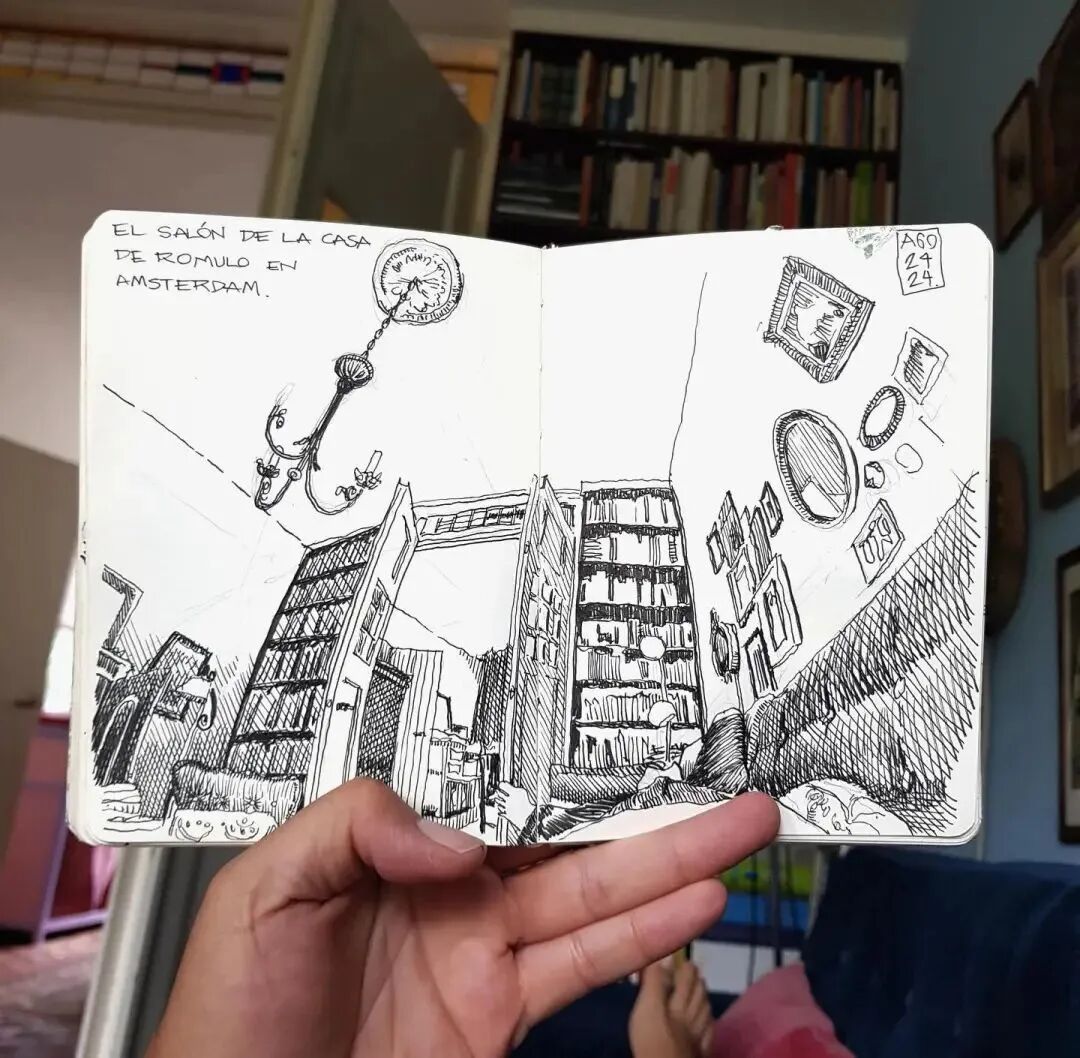 EL SALÓN DE LA CASA
DE ROMULO EN
AMSTERDAM.
AGO
24
24.